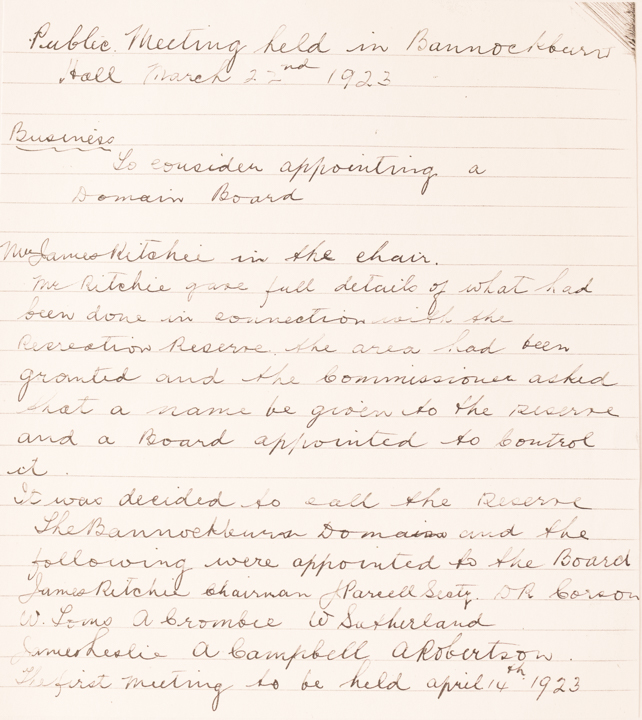 Public Meeting held in Bannockburn
Hall March 22nd 1923
Business
To consider appointing a
Domain Board
Mr James Ritchie in the chair.
Mr Ritchie gave full details of what had
been done in connection with the
Recreation Reserve. the area had been
granted and the Commissioner asked
that a name be given to the Reserve
and a Board appointed to Control
it.
It was decided to call the Reserve
The Bannockburn Domain and the
following were appointed to the Board
James Ritchie Chairman J Parcell Secty. DR Corson
W. Toms A Crombie W Sutherland
James Leslie A Campbell A Robertson.
The first meeting to be held april 14th 1923